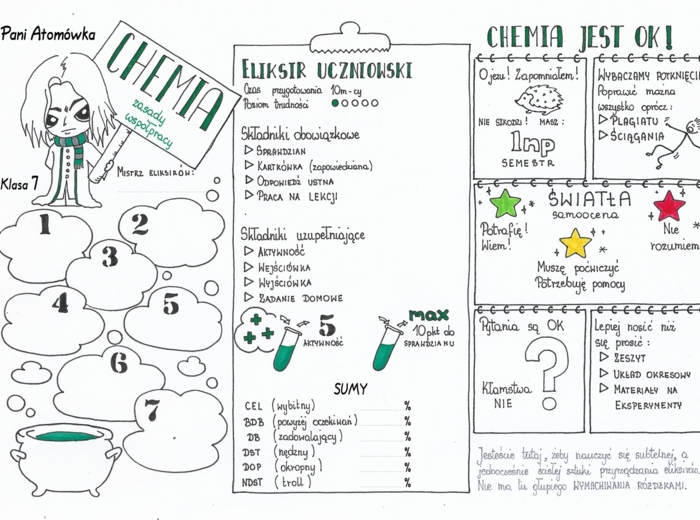 Pani Atomówka
CHEMIA
zasady
współpracy
Mistrz eliksirów:
Klasa 7
1
2
3
4
5
6
7
ELIKSIR UCZNIOWSKI
Czas przygotowania 10m-cy
Poziom trudności
Składniki obowiązkowe
SPRAWDZIAN
KARTKÓWKA (zapowiedziana)
ODPOWIEDŹ USTNA
PRACA NA LEKCJI
Składniki uzupełniające
AKTYWNOŚĆ
WEJŚCIÓWKA
WYJŚCIÓWKA
ZADANIE DOMOWE
5
AKTYWNOŚĆ
max
10 pkt do
SPRAWDZIANU
SUMY
CEL (wybitny) %
BDB (powyżej oczekiwań) %
DB (zadowalający) %
DST (nędzny) %
DOP (okropny) %
NDST (troll) %
CHEMIA JEST OK!
O jeżu! Zapomniałem!
NIE SZKODZI! MASZ:
1np
SEMESTR
WYBACZAMY POTKNIĘCIA
Poprawić można
wszystko oprócz:
PLAGIATU
ŚCIĄGANIA
ŚWIATŁA
samoocena
Potrafię!
Wiem!
Nie
rozumiem
Muszę poćwiczyć
Potrzebuję pomocy
Pytania są OK
?
Kłamstwa
NIE
Lepiej nosić niż
się prosić:
ZESZYT
UKŁAD OKRESOWY
MATERIAŁY NA
EKSPERYMENTY
Jesteście tutaj, żeby nauczyć się subtelnej, a
jednocześnie ścisłej sztuki przyrządzania eliksirów.
Nie ma tu głupiego WYMACHIWANIA RÓŻDŻKAMI.